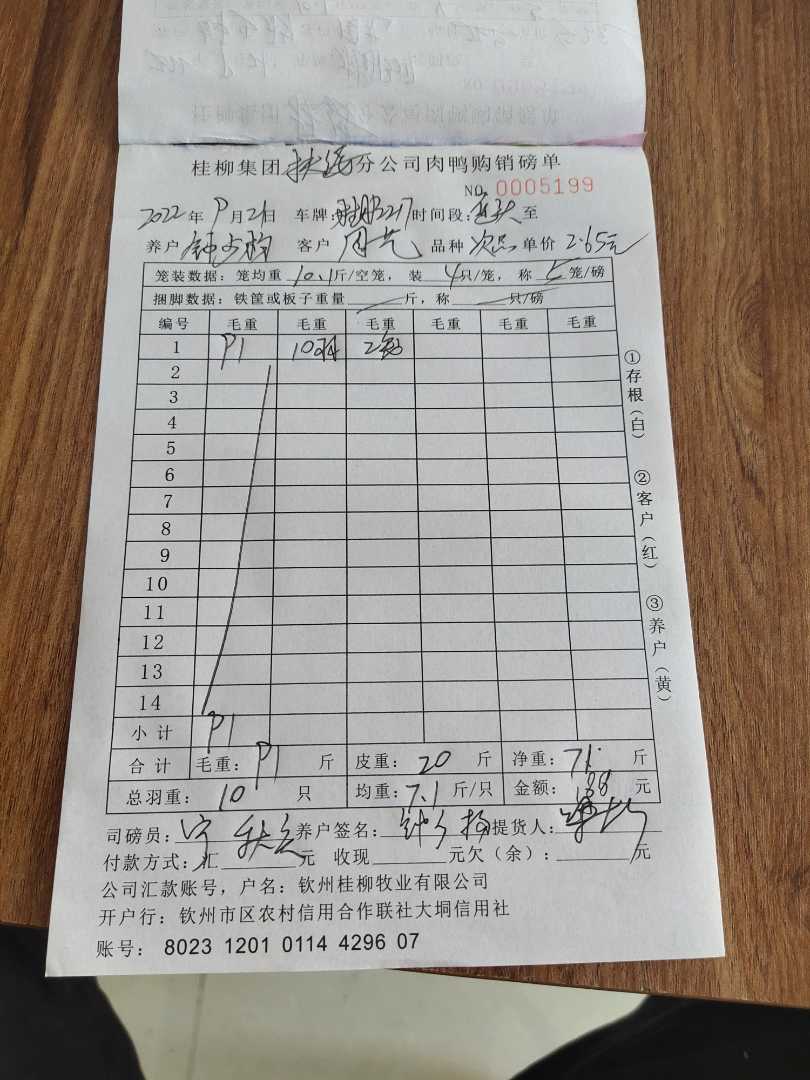 桂柳集团 分公司肉鸭购销磅单
NO 0005199
2022年9月21日 车牌: 2217 时间段: 至
养户 钟 客户 周 品种 次品 单价 2.65元
笼装数据: 笼均重 10.1斤/空笼, 装 4只/笼, 称 笼/磅
捆脚数据: 铁筐或板子重量 斤, 称 只/磅
编号 毛重 毛重 毛重 毛重 毛重 毛重
1 91 10羽 2笼
2
3
4
5
6
7
8
9
10
11
12
13
14
小计 91
合计 毛重: 91 斤 皮重: 20 斤 净重: 71. 斤
总羽重: 10 只 均重: 7.1 斤/只 金额: 188 元
司磅员: 养户签名: 钟 提货人:
付款方式: 汇 元 收现 元欠(余): 元
公司汇款账号, 户名: 钦州桂柳牧业有限公司
开户行: 钦州市区农村信用合作联社大垌信用社
账号: 8023 1201 0114 4296 07
①存根(白)
②客户(红)
③养户(黄)